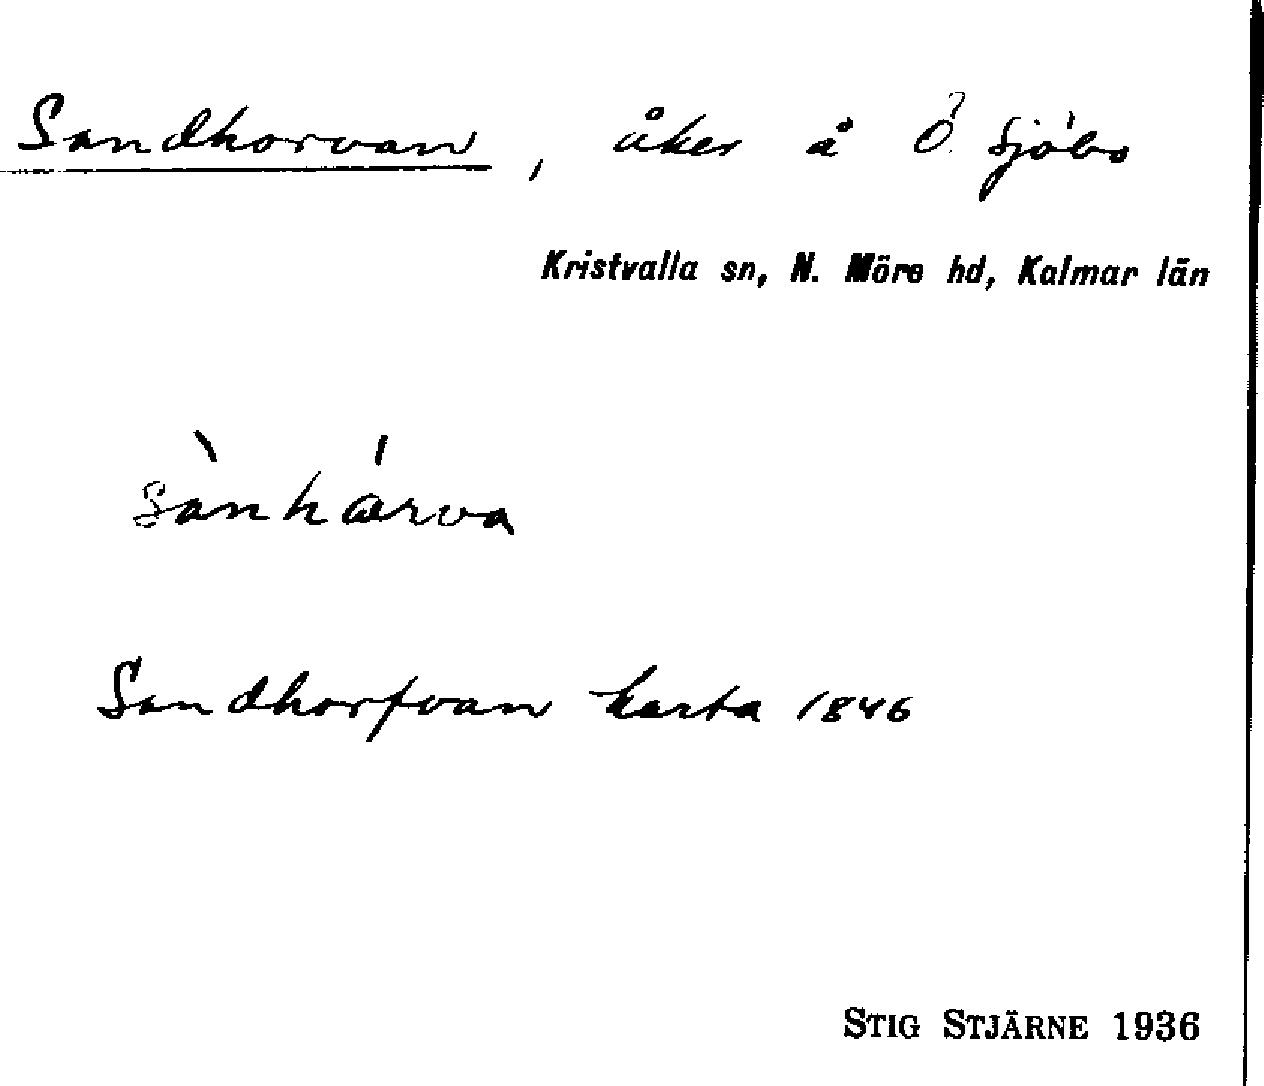 Sandhorvan, åker å Ö Sjöbo
Kristvalla sn, N. Möre hd, Kalmar län
sànhárva
Sandhorfvan karta 1846
STIG STJÄRNE 1936